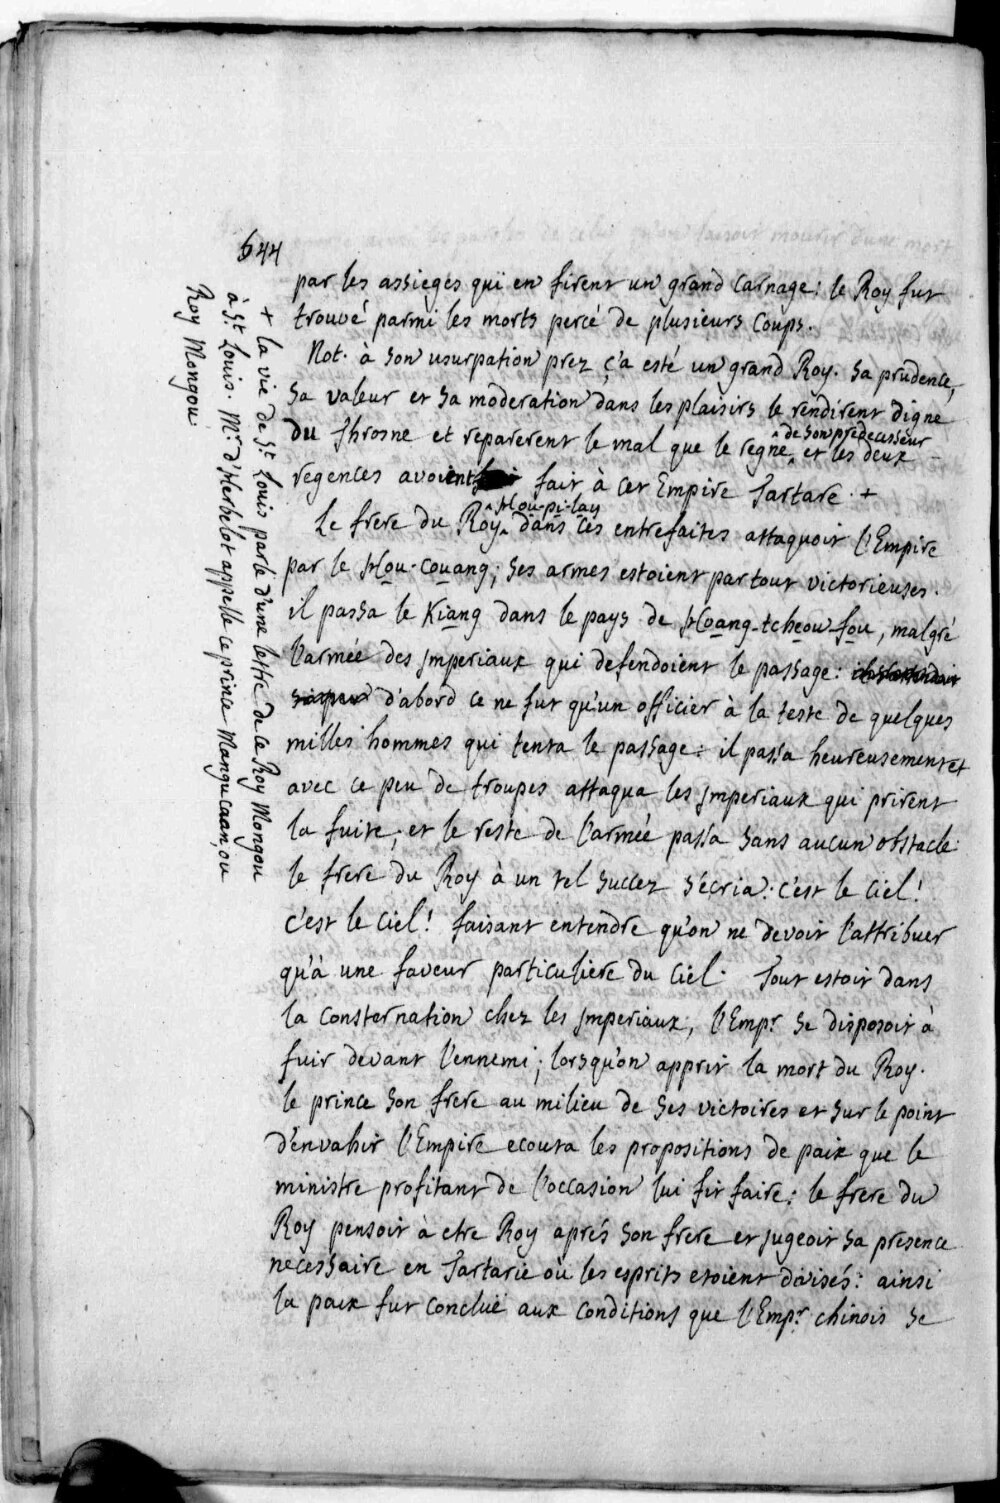 644
par les assieges qui en firent un grand carnage: le Roy fut
trouvé parmi les morts percé de plusieurs coups.
Not. à son usurpation prez ç'a esté un grand Roy. sa prudence,
sa valeur et sa moderation dans les plaisirs le rendirent digne
du throsne et reparerent le mal que le regne de son predecesseur et les deux
regences avoient fait à cet Empire Tartare. +
Le frere du Roy Hou-pi-lay dans ces entrefaites attaquoit l'Empire
par le Hou-couang; ses armes estoient partout victorieuses.
il passa le Kiang dans le pays de Hoang-tcheou-fou, malgré
l'armée des Imperiaux qui defendoient le passage:
d'abord ce ne fut qu'un officier à la teste de quelques
milles hommes qui tenta le passage: il passa heureusement et
avec ce peu de troupes attaqua les Imperiaux qui prirent
la fuite, et le reste de l'armée passa sans aucun obstacle:
le frere du Roy à un tel succez s'écria: c'est le ciel!
c'est le ciel! faisant entendre qu'on ne devoit l'attribuer
qu'à une faveur particuliere du ciel. Tout estoit dans
la consternation chez les Imperiaux, l'Emp.r se disposoit à
fuir devant l'ennemi; lorsqu'on apprit la mort du Roy.
le prince son frere au milieu de ses victoires et sur le point
d'envahir l'Empire ecouta les propositions de paix que le
ministre profitant de l'occasion lui fit faire: le frere du
Roy pensoit à etre Roy aprés son frere et jugeoit sa presence
necessaire en Tartarie où les esprits etoient divisés: ainsi
la paix fut concluë aux conditions que l'Emp.r chinois se
+ la vie de S.t Louis parle d'une lettre de ce Roy Mongou
à S.t Louis. M.r d'Herbelot appelle ce prince Mangu caan ou
Roy Mongou.